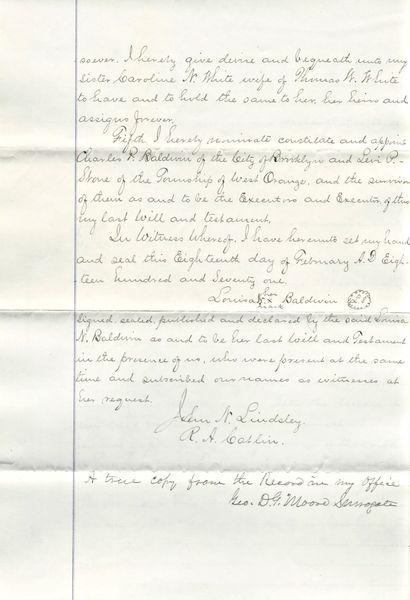 soever. I hereby give devise and bequeath unto my
sister Caroline N. White wife of Thomas W. White
to have and to hold the same to her, her heirs and
assigns forever.
Fifth I hereby nominate constitute and appoint
Charles P. Baldwin of the City of Brooklyn and Levi P.
Stone of the Township of West Orange, and the survivor
of them as and to be the Executors and Executor of this
my last Will and testament.
In Witness Whereof, I have hereunto set my hand
and seal this Eighteenth day of February A.D Eigh-
teen hundred and Seventy one.
her
Louisa N. x Baldwin
mark
Signed, sealed, published and declared by the said Louisa
N. Baldwin as and to be her last Will and Testament
in the presence of us, who were present at the same
time and subscribed our names as witnesses at
her request.
John N. Lindsley.
R. A. Catlin.
A true copy from the Record in my Office
Geo. D. G. Moore Surrogate